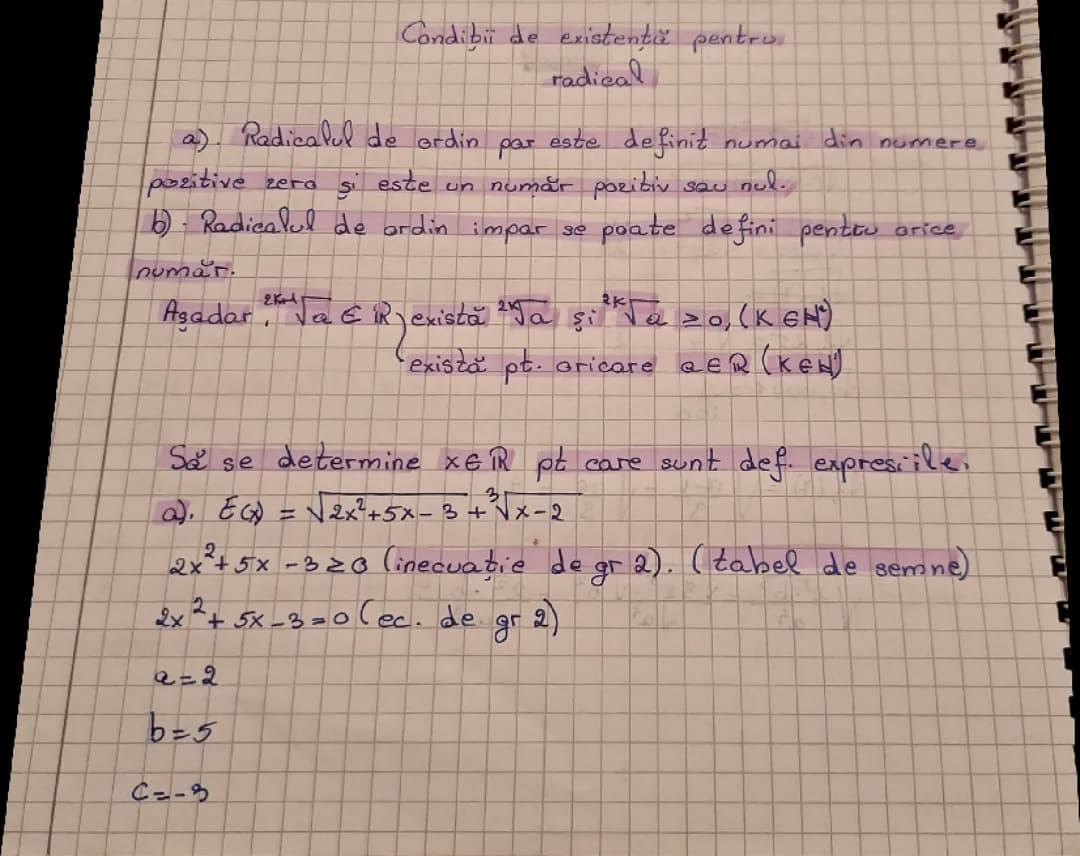 Condiții de existență pentru
radical
a). Radicalul de ordin par este definit numai din numere
pozitive zero și este un număr pozitiv sau nul.
b). Radicalul de ordin impar se poate defini pentru orice
număr.
Așadar, ²ᵏ⁺¹√a ∈ ℝ } există ²ᵏ√a și ²ᵏ√a ≥ 0, (K ∈ ℕ*)
există pt. oricare a ∈ ℝ (K ∈ ℕ*)
Să se determine x ∈ ℝ pt care sunt def. expresiile.
a). E(x) = √2x²+5x-3 + ³√x-2
2x²+5x-3≥0 (inecuație de gr 2). (tabel de semne)
2x²+5x-3=0 (ec. de gr 2)
a=2
b=5
c=-3